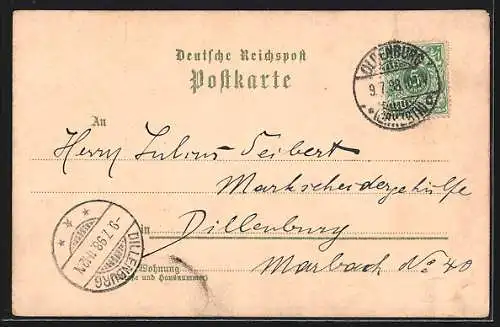 Deutsche Reichspost
Postkarte
OLDENBURG
9.7.98
An
Herrn Julius Seibert
Markscheidergehülfe
in Dillenburg
Wohnung
(Straße und Hausnummer)
Marbach No 40
DILLENBURG
9.7.98